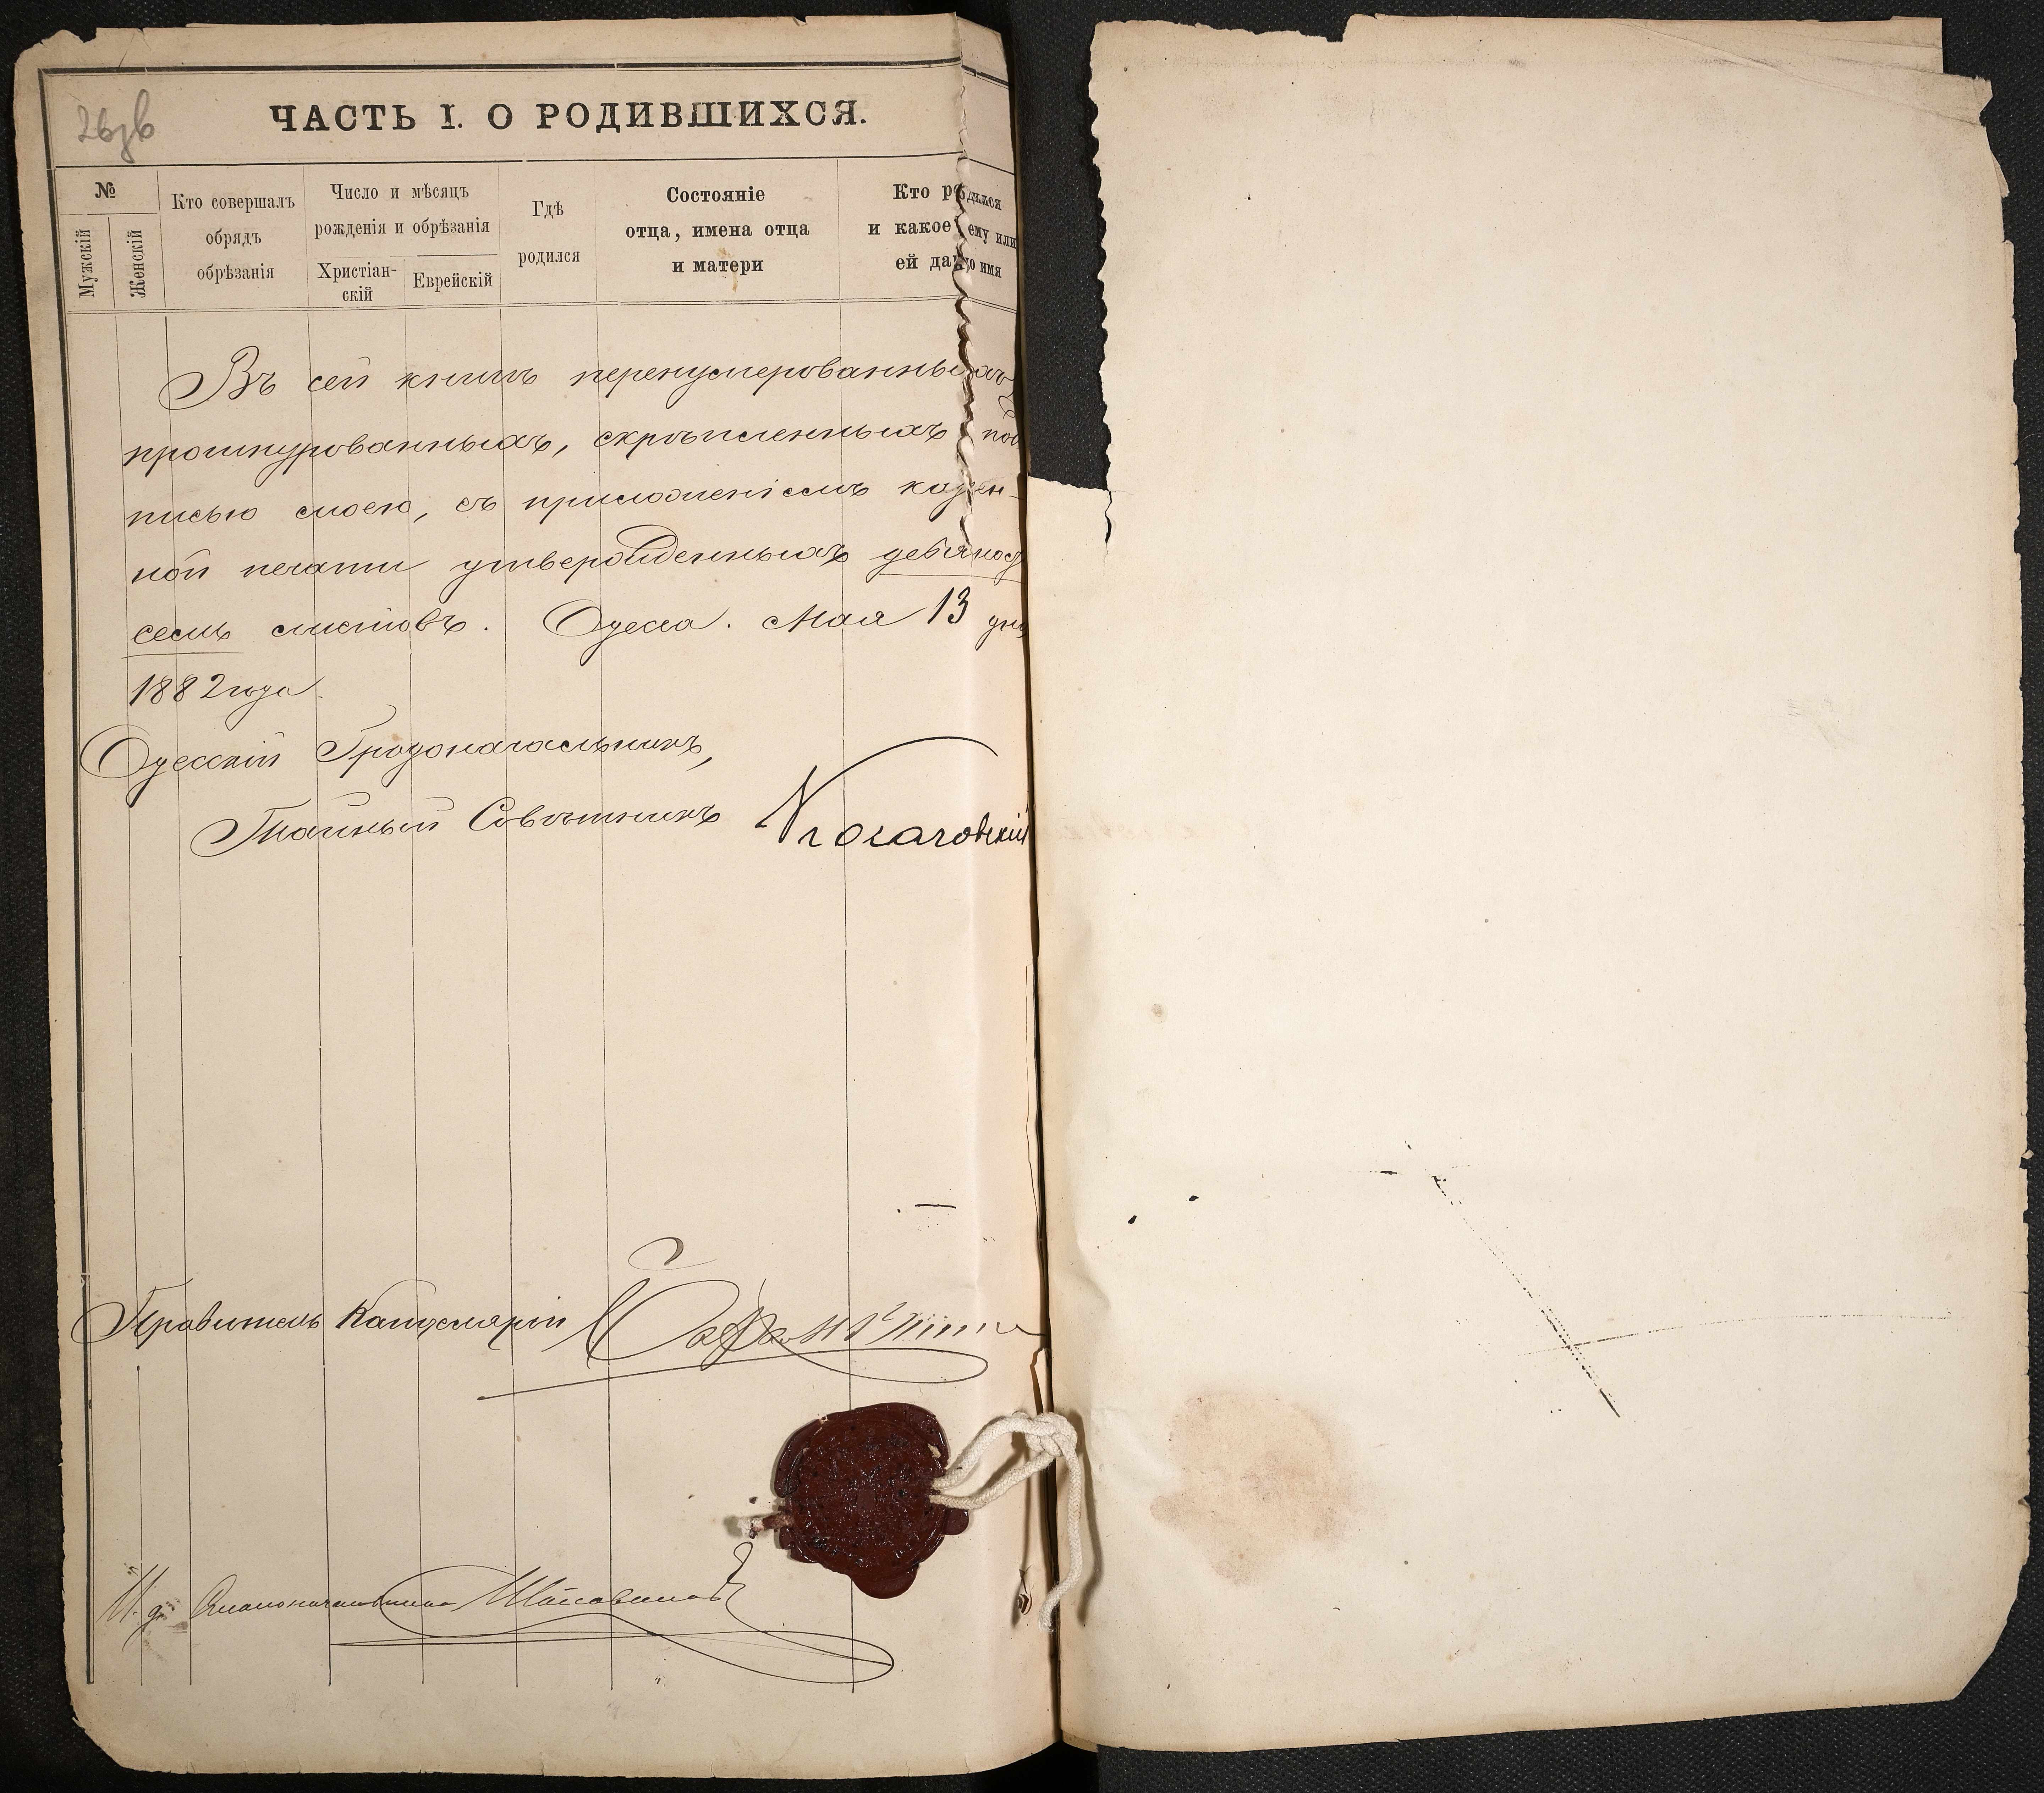 26зв
ЧАСТЬ I. О РОДИВШИХСЯ.
№
Мужскій
Женскій
Кто совершалъ
обрядъ
обрѣзанія
Число и мѣсяцъ
рожденія и обрѣзанія
Христіан-
скій
Еврейскій
Гдѣ
родился
Состояніе
отца, имена отца
и матери
Кто родился
и какое ему или
ей дано имя
Въ сей книгѣ перенумерованныхъ
прошнурованныхъ, скрѣпленныхъ под
писью моею, съ приложеніемъ казен-
ной печати утвержденныхъ девяносто
семь листовъ. Одесса. Мая 13 дня
1882 года.
Одесскій Градоначальникъ,
Тайный Совѣтникъ Косаговскій
Правитель Канцеляріи
И. д. Столоначальника